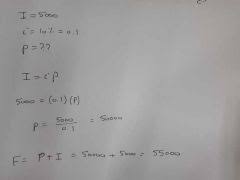 I = 5000
i = 10% = 0.1
P = ??
I = iP
5000 = (0.1)(P)
P = 5000/0.1 = 50000
F = P + I = 50000 + 5000 = 55000